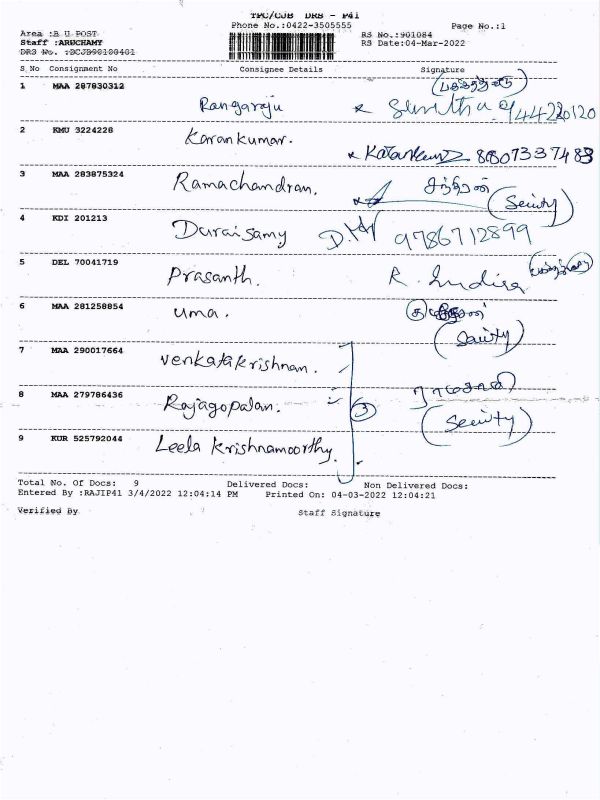 TPC/CJB DRS - P41
Phone No.:0422-3505555 Page No.:1
Area :B U POST RS No.:901084
Staff :ARUCHAMY RS Date:04-Mar-2022
DRS No. :DCJB90108401
S_No Consignment No Consignee Details Signature
1 MAA 287830312
Rangaraju
2 KMU 3224228
Karankumar. 8807337483
3 MAA 283875324
Ramachandran. சந்திரன்
(Secuity)
4 KDI 201213
Duraisamy 9786712899
5 DEL 70041719
Prasanth. R. Indira
6 MAA 281258854
uma.
(Secuity)
7 MAA 290017664
Venkatakrishnan.
8 MAA 279786436
Rajagopalan. 3
(Secuity)
9 KUR 525792044
Leela Krishnamoorthy.
Total No. Of Docs: 9 Delivered Docs: Non Delivered Docs:
Entered By :RAJIP41 3/4/2022 12:04:14 PM Printed On: 04-03-2022 12:04:21
Verified By Staff Signature